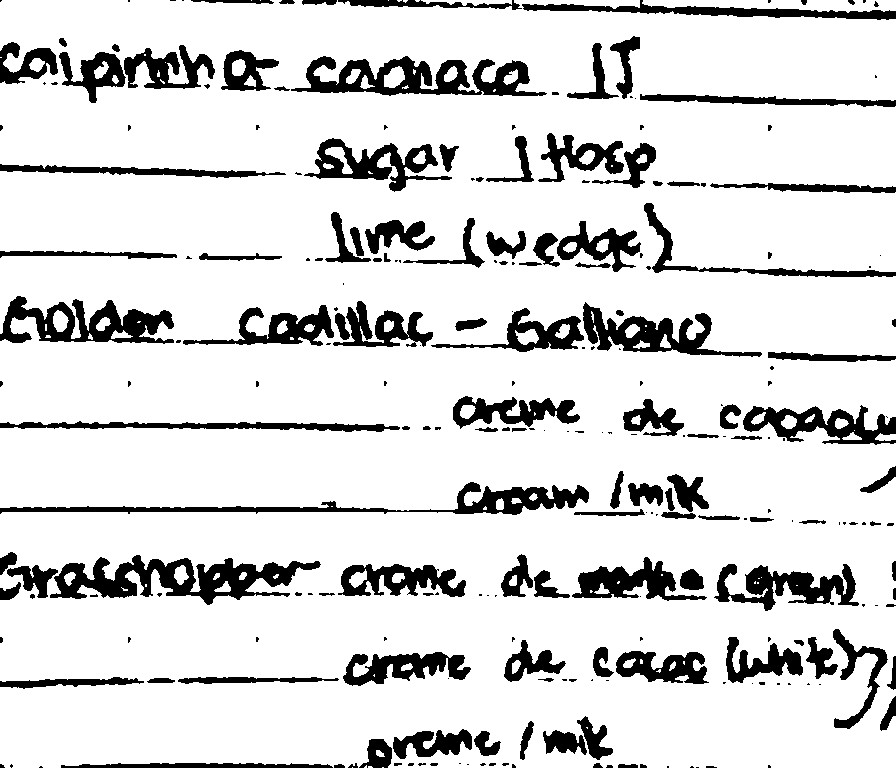 Caipirinha- caanaca 1J
sugar 1 tbosp
lime (wedge)
Golden Cadillac - Galliano
creme de cacao
cream / milk
Grasshopper- creme de menthe (green)
creme de cacao (white)
creme / milk